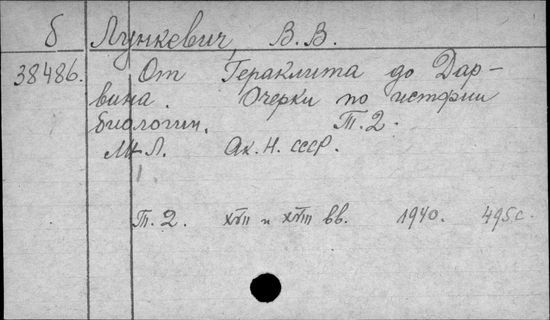 б Лункевич, В. В.
38486. От Гераклита до Дар-
вина. Очерки по истории
биологии. Т. 2.
М-Л. Ак. Н. СССР.
Т. 2. XVII и XVIII вв. 1940. 495 с.